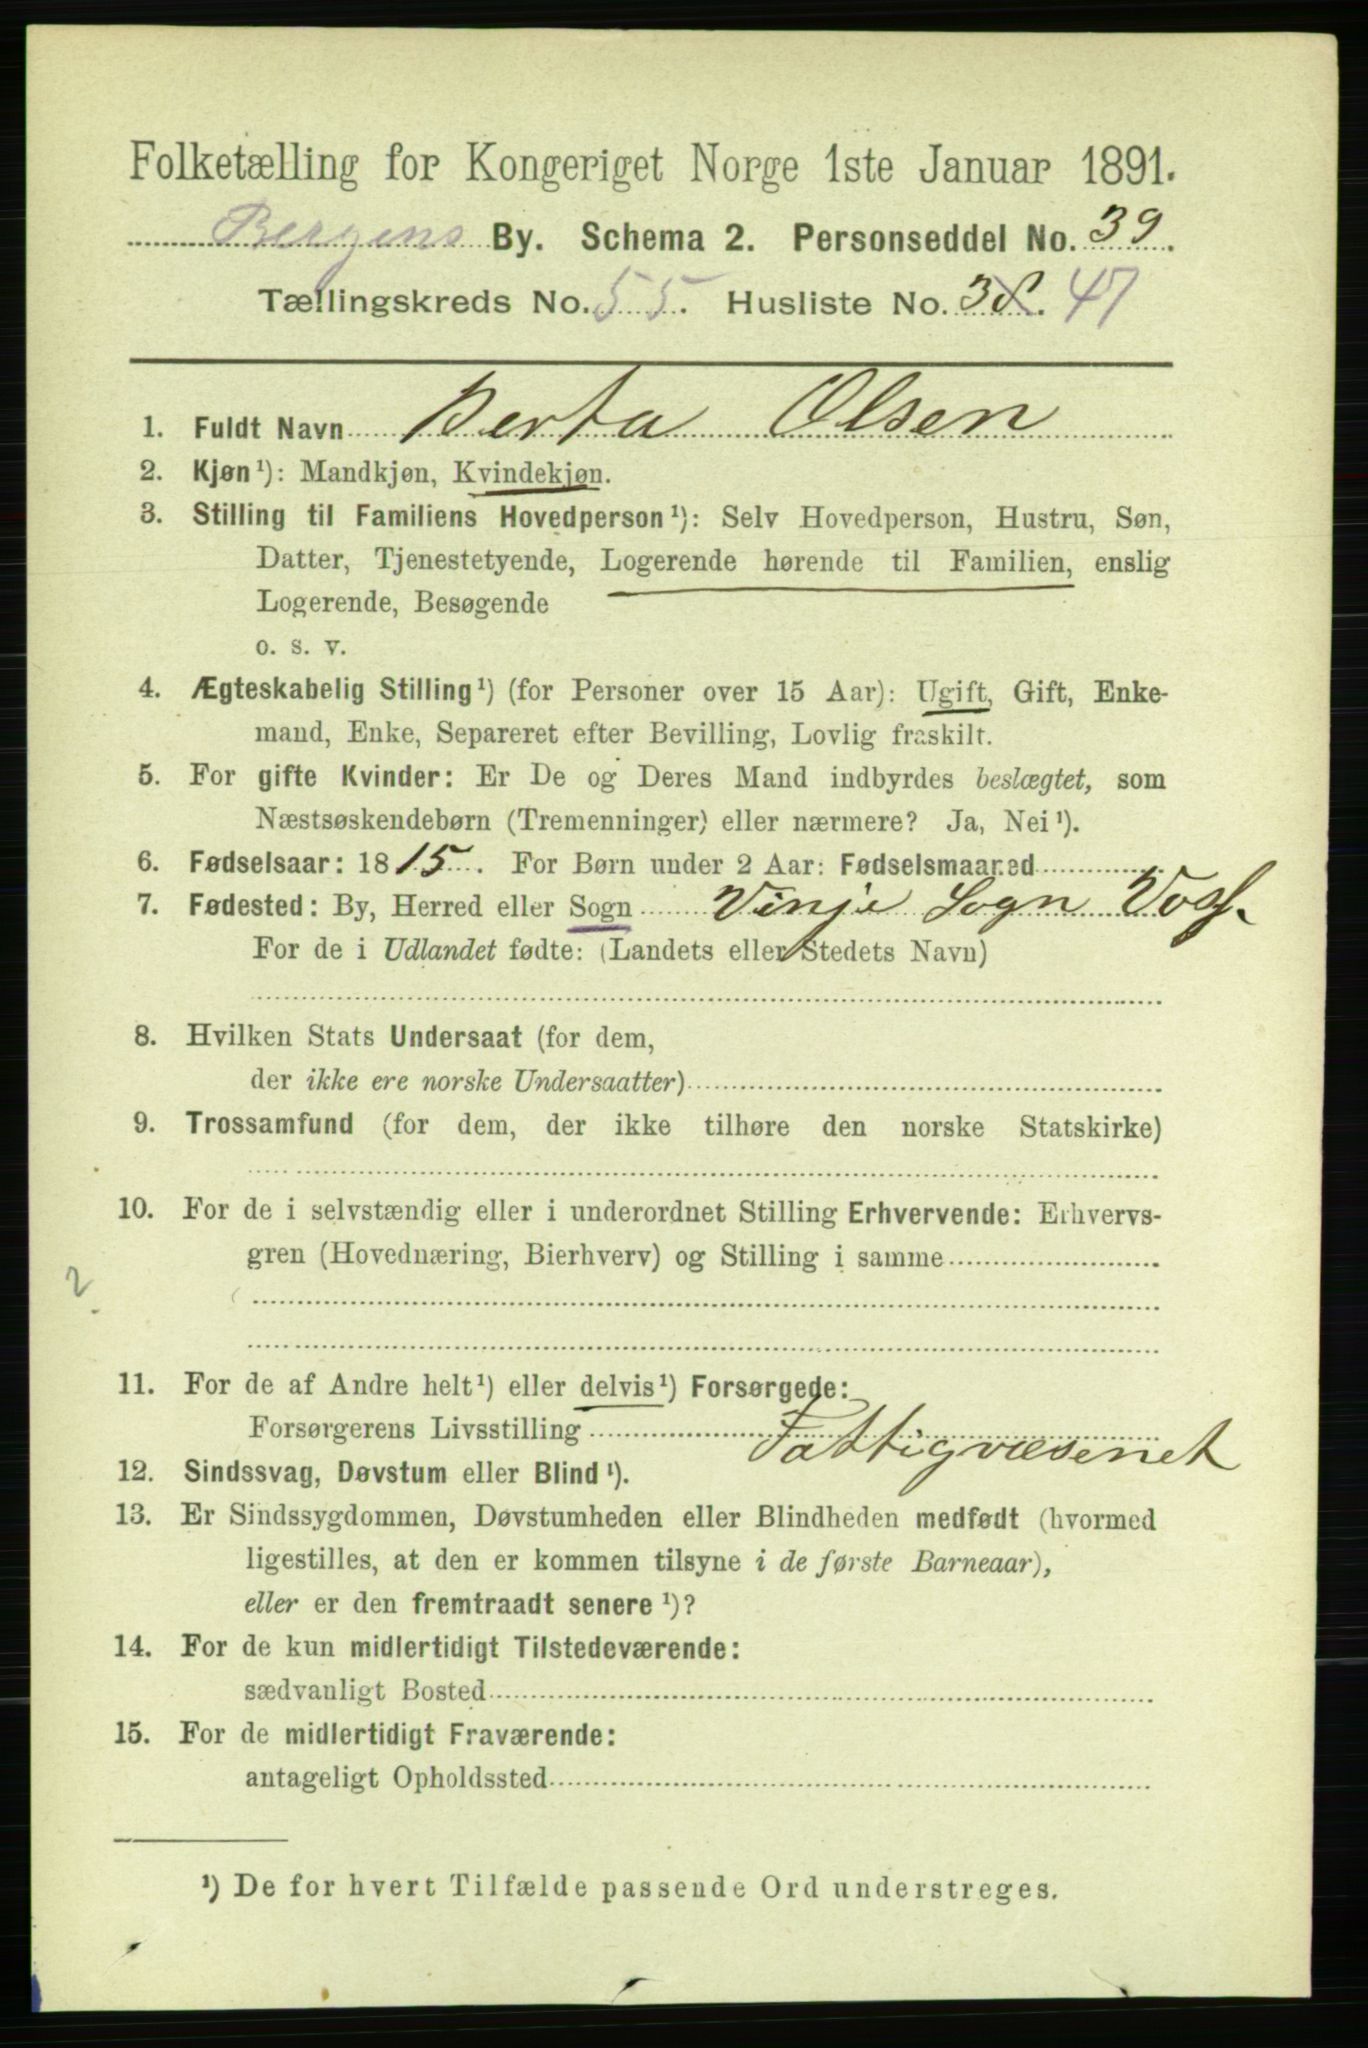 Folketælling for Kongeriget Norge 1ste Januar 1891.
Bergens By. Schema 2. Personseddel No. 39.
Tællingskreds No. 55. Husliste No. 38. 47
1. Fuldt Navn Berta Olsen
2. Kjøn¹): Mandkjøn, Kvindekjøn.
3. Stilling til Familiens Hovedperson¹): Selv Hovedperson, Hustru, Søn,
Datter, Tjenestetyende, Logerende hørende til Familien, enslig
Logerende, Besøgende
o. s. v.
4. Ægteskabelig Stilling¹) (for Personer over 15 Aar): Ugift, Gift, Enke-
mand, Enke, Separeret efter Bevilling, Lovlig fraskilt.
5. For gifte Kvinder: Er De og Deres Mand indbyrdes beslægtet, som
Næstsøskendebørn (Tremenninger) eller nærmere? Ja, Nei¹).
6. Fødselsaar: 1815. For Børn under 2 Aar: Fødselsmaaned
7. Fødested: By, Herred eller Sogn Vinje Sogn Voss.
For de i Udlandet fødte: (Landets eller Stedets Navn)
8. Hvilken Stats Undersaat (for dem,
der ikke ere norske Undersaatter)
9. Trossamfund (for dem, der ikke tilhøre den norske Statskirke)
10. For de i selvstændig eller i underordnet Stilling Erhvervende: Erhvervs-
gren (Hovednæring, Bierhverv) og Stilling i samme
2
11. For de af Andre helt¹) eller delvis¹) Forsørgede:
Forsørgerens Livsstilling Fattigvæsenet
12. Sindssvag, Døvstum eller Blind¹).
13. Er Sindssygdommen, Døvstumheden eller Blindheden medfødt (hvormed
ligestilles, at den er kommen tilsyne i de første Barneaar),
eller er den fremtraadt senere¹)?
14. For de kun midlertidigt Tilstedeværende:
sædvanligt Bosted
15. For de midlertidigt Fraværende:
antageligt Opholdssted
¹) De for hvert Tilfælde passende Ord understreges.